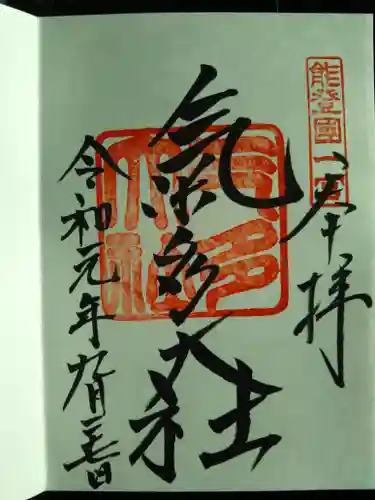 能登國一宮
奉拝
氣多大社
氣多大社
令和元年九月二十四日